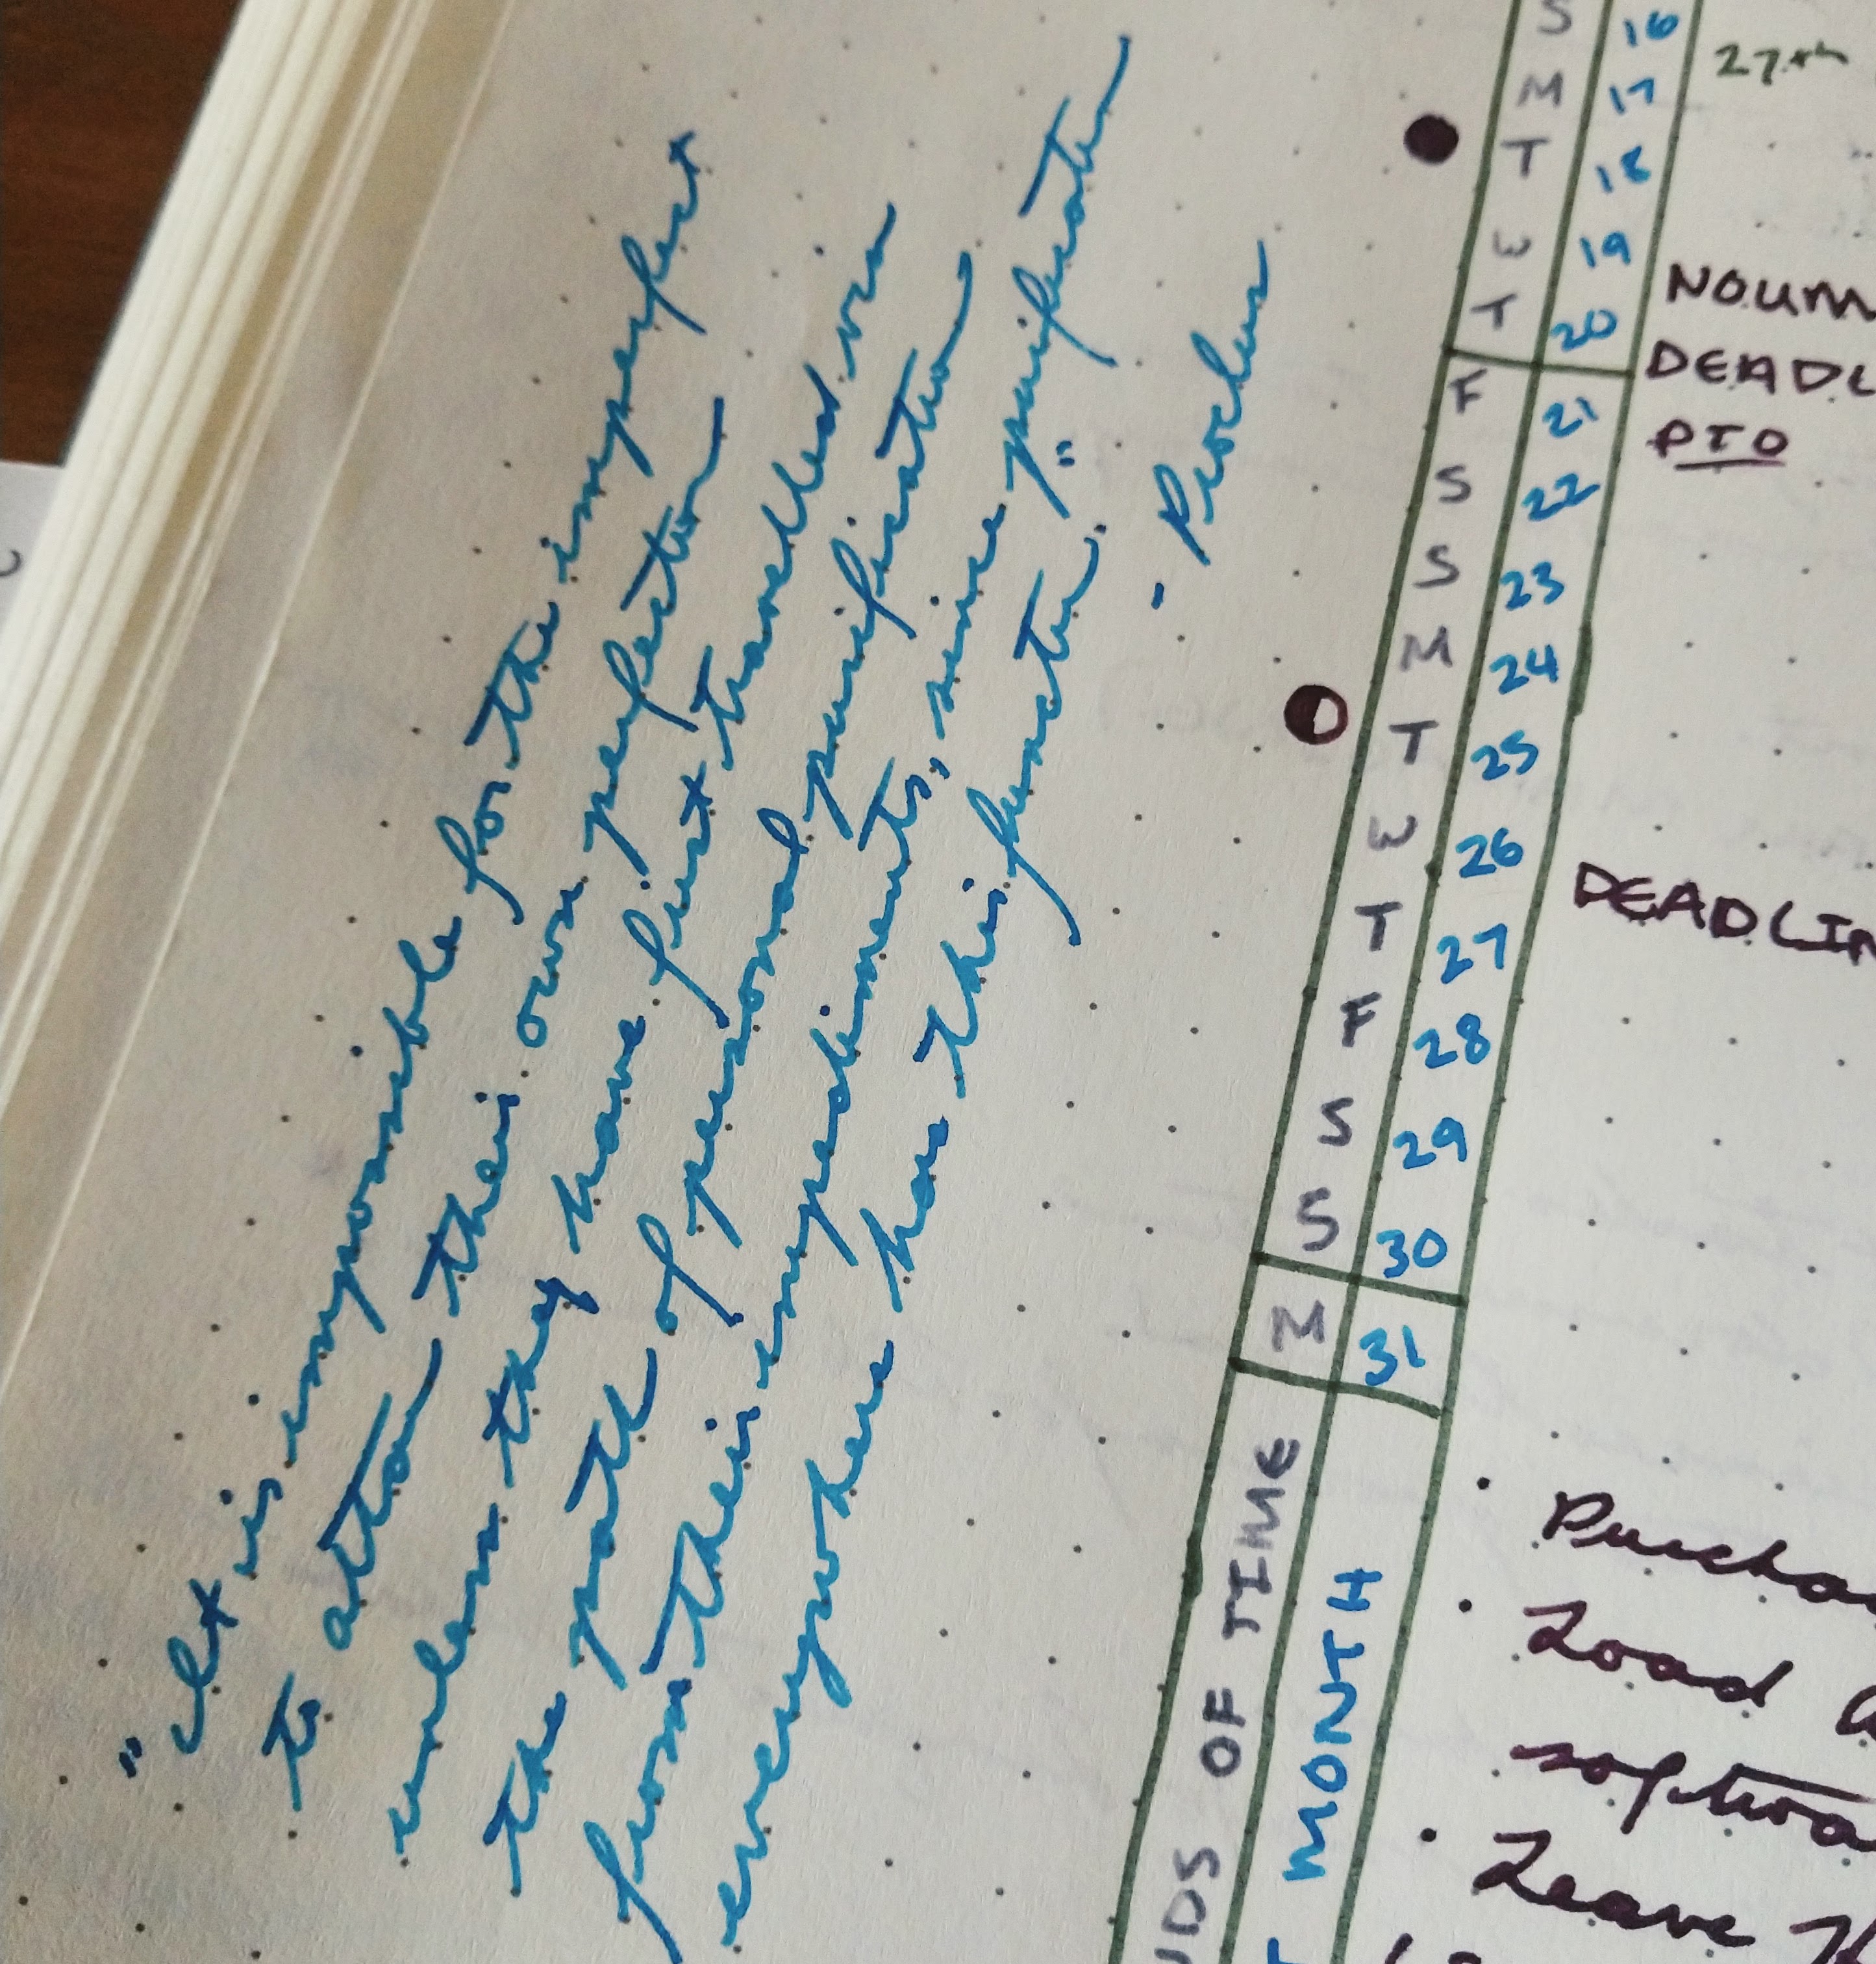 "It is impossible for the imperfect
to attain their own perfection
unless they have first travelled on
the path of personal purification
from their impediments, since purification
everywhere has this function."
- Proclus
S 16
M 17
T 18
W 19
T 20
F 21
S 22
S 23
M 24
T 25
W 26
T 27
F 28
S 29
S 30
M 31
27th
NOUM
DEADL
PTO
DEADLIN
OF TIME
MONTH
· Purcha
· Load
softwa
· Leave